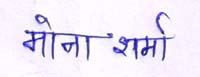 मोना शर्मा